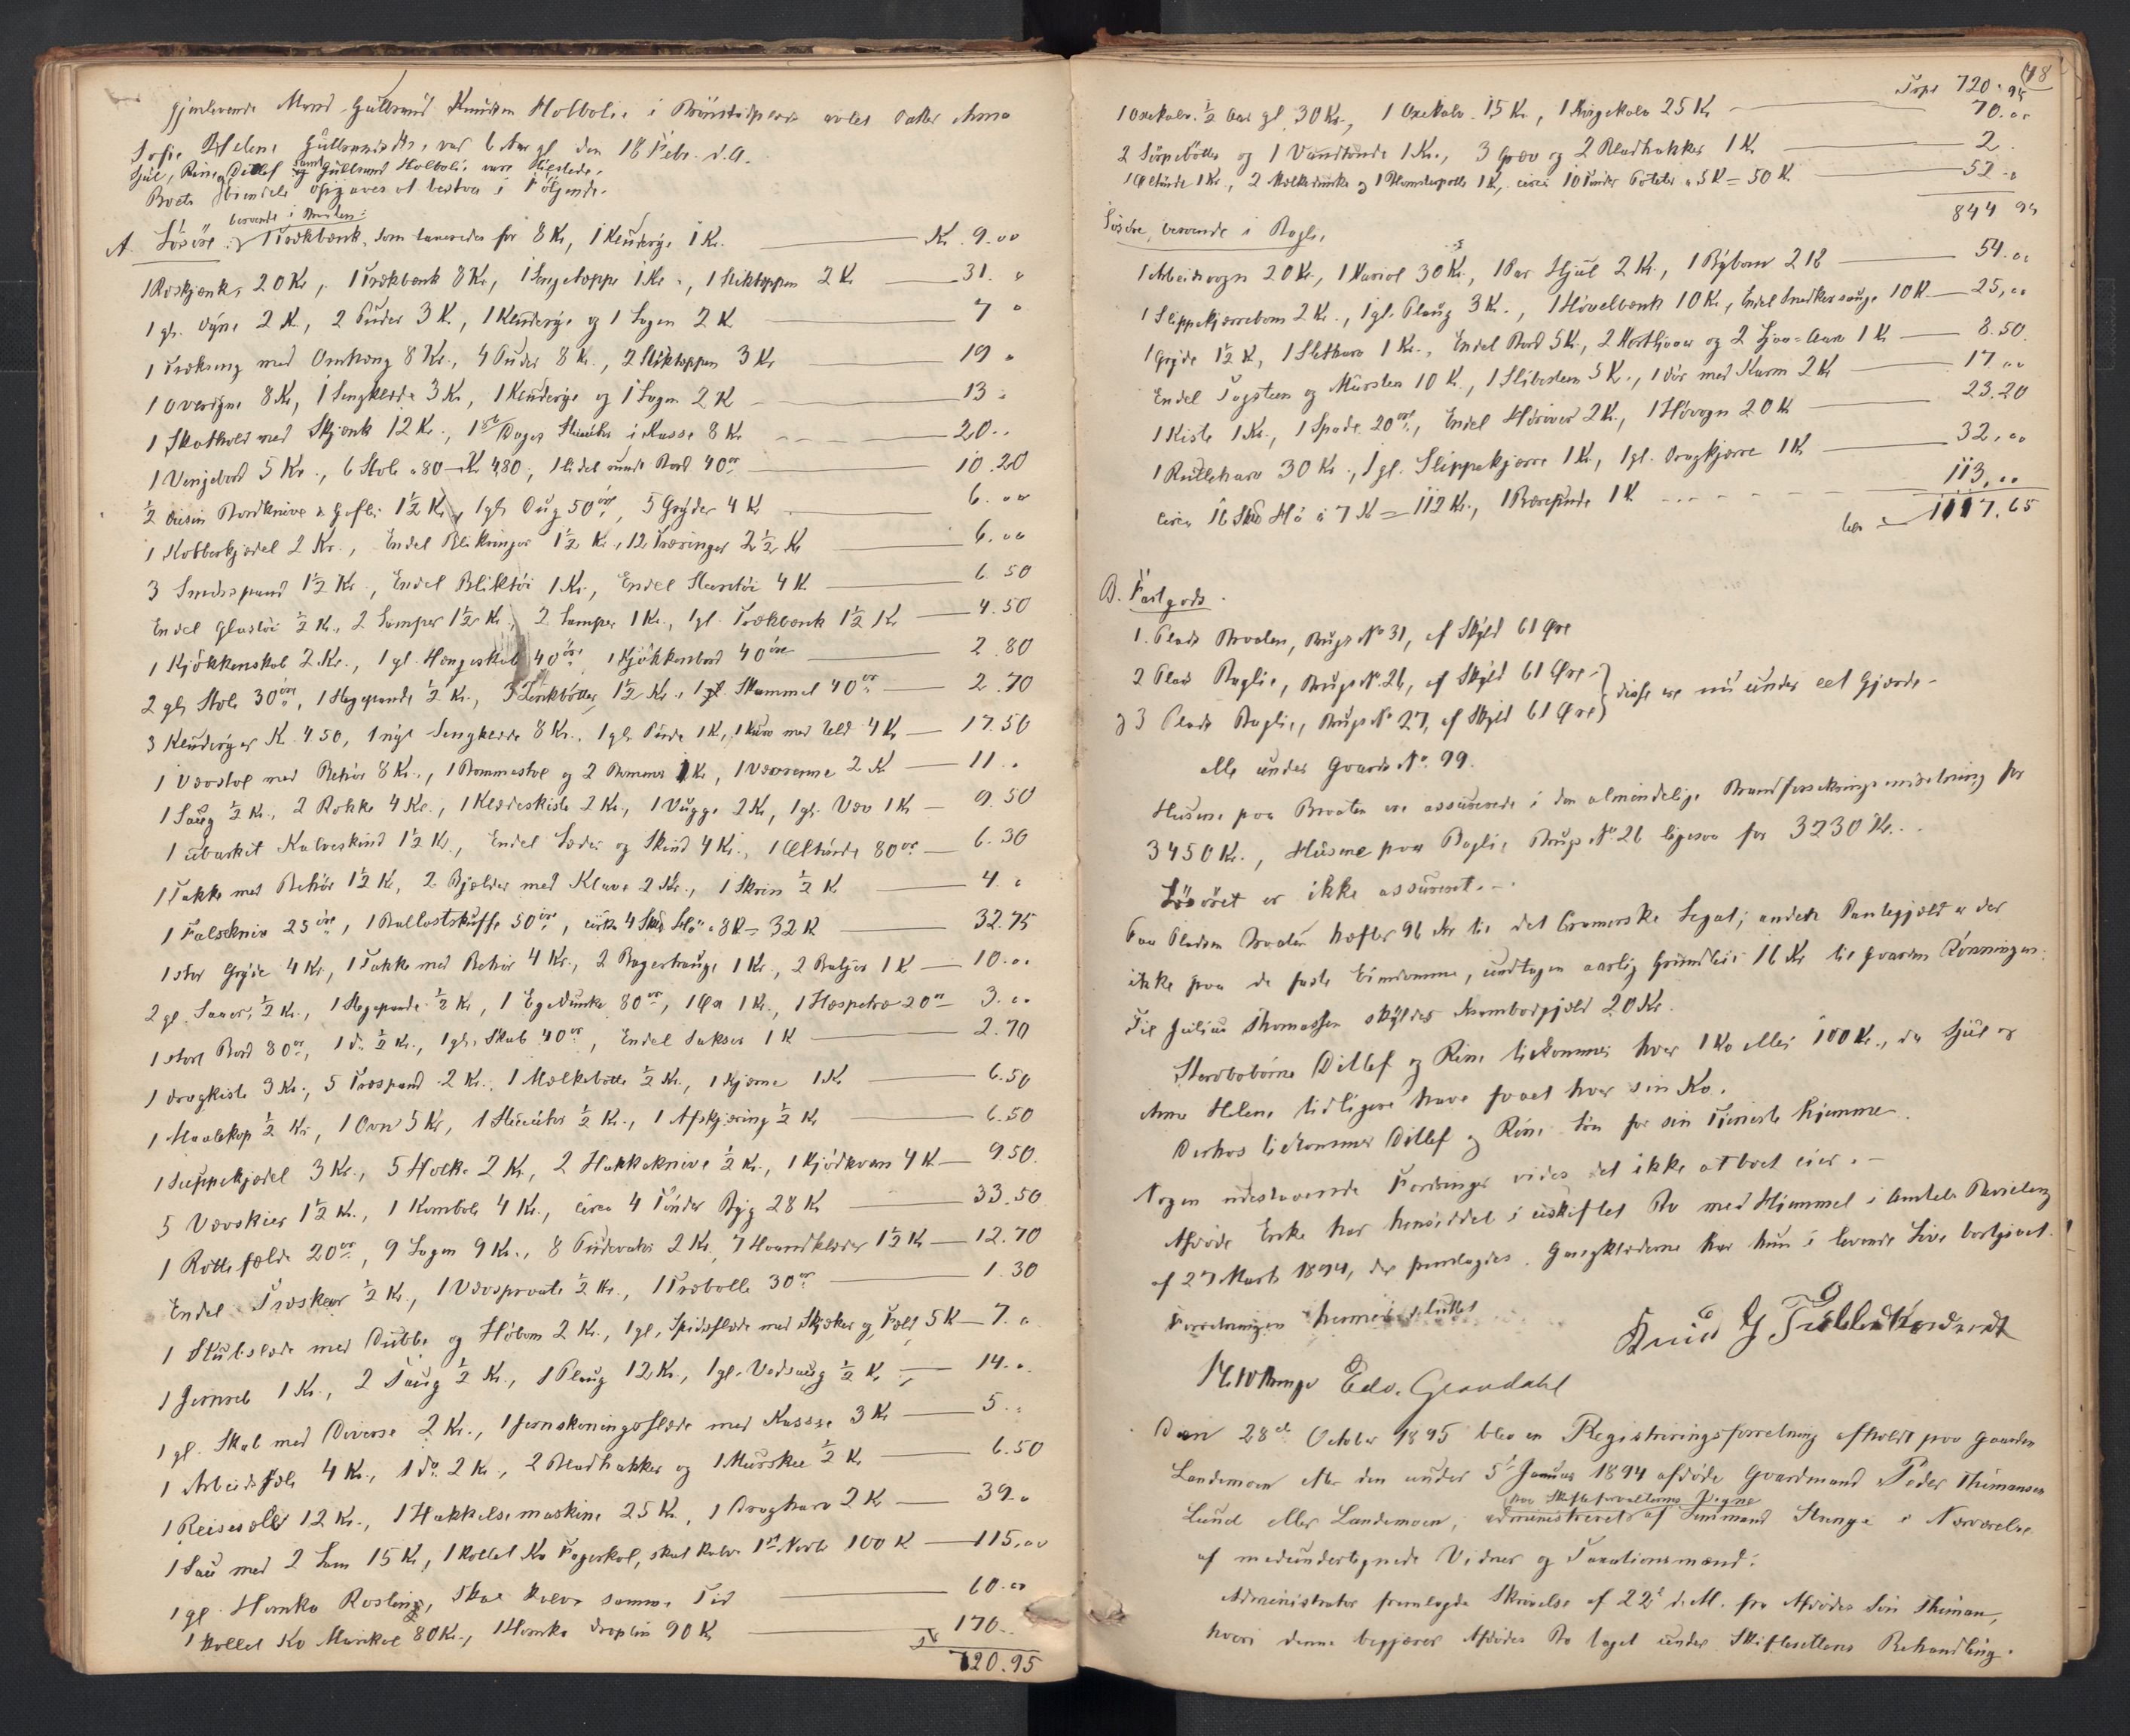 gjenlevende Mand Gulbrand Knudsen Holbolie i avles Datter Anna
Sofie Helene Gulbrandsdtr, var 6 Aar gl. den 18 Febr. d.A.
Hjul, Rine, Ditlef samt Gulbrand Holbolie vare tilstede.
Boets Eiendele opgaves at bestaa i Følgende.
A. Løsøre beroende i Braaten:
1 Trækbænk, som taxeredes for 8 Kr, 1 Klenderye 1 Kr. Kr. 9.00
1 Roskjænk 20 Kr, 1 Trækbænk 8 Kr, 1 Sengetæppe 1 Kr., 1 Stiktæppen 2 Kr 31. "
1 gl. Dyne 2 Kr., 2 Puder 3 Kr, 1 Klenderye og 1 Lagen 2 Kr 7 "
1 Trækseng med Omhæng 8 Kr., 4 Puder 8 Kr., 2 Stiktæppen 3 Kr 19 "
1 Overdyne 8 Kr, 1 Sengklæde 3 Kr, 1 Klenderye og 1 Lagen 2 Kr 13 "
1 Skathold med Skjænk 12 Kr., 1 8te Dages Stueuhr i Kasse 8 Kr 20. "
1 Vingebord 5 Kr., 6 Stole a 80 = Kr 4.80, 1 lidet rundt Bord 40 ør 10.20
½ Dusin Bordknive & Gafler 1½ Kr, 1 gl. Dug 50 øre, 5 Gryder 4 Kr 6.00
1 Kobberkjedel 2 Kr., Endel Blikringer 1½ Kr., 12 Træringer 2½ Kr 6.00
3 Smørspand 1½ Kr., Endel Bliktøi 1 Kr., Endel Stentøi 4 Kr 6.50
Endel Glastøi ½ Kr., 2 Lamper 1½ Kr., 2 Lamper 1 Kr., 1 gl. Trækbænk 1½ Kr 4.50
1 Kjøkkenskab 2 Kr., 1 gl. Hængeskab 40 øre, 1 Kjøkkenbord 40 øre 2.80
2 gl. Stole 30 øre, 1 Stegepande ½ Kr., 3 1½ Kr., 1 gl. Skammel 40 ør 2.70
3 Klenderyer Kr. 4.50, 1 nyt Sengklæde 8 Kr., 1 gl. Pude 1 Kr, 1 Kurv med Uld 4 Kr 17.50
1 Vævstol med Behør 8 Kr., 1 Bommestol og 2 Bommer 1 Kr, 1 2 Kr 11. "
1 Saug ½ Kr., 2 Rokke 4 Kr., 1 Klædeskiste 2 Kr., 1 Vugge 2 Kr, 1 gl. Væv 1 Kr 9.50
1 ubarket Kalveskind 1½ Kr., Endel Læder og Skind 4 Kr., 1 Øltønde 80 ør 6.30
1 Takke med Behør 1½ Kr, 2 Bjælder med Klave 2 Kr., 1 Skrin ½ Kr 4. "
1 Falsekniv 25 øre, 1 Ballastskuffe 50 øre, cirka 4 Skd Hø a 8 Kr = 32 Kr 32.75
1 stor Gryde 4 Kr, 1 Takke med Behør 4 Kr., 2 Bagertrauge 1 Kr., 2 Baljer 1 Kr 10.00
2 gl. ½ Kr., 1 Stegepande ½ Kr, 1 Egedunke 80 ør, 1 Øx 1 Kr., 1 Haspetræ 20 ør 3.00
1 stort Bord 80 ør, 1 do. ½ Kr., 1 gl. Skab 40 ør, Endel Sakser 1 Kr 2.70
1 Dragkiste 3 Kr., 5 Træspand 2 Kr., 1 Melkebøtte ½ Kr., 1 Kjærne 1 Kr 6.50
1 Maalekop ½ Kr, 1 Ovn 5 Kr, 1 Stueuhr ½ Kr., 1 Afskjæring ½ Kr 6.50
1 Suppekjedel 3 Kr., 5 Holke 2 Kr, 2 Hakkeknive ½ Kr., 1 Kjødkværn 4 Kr 9.50
5 Vævskier 1½ Kr., 1 4 Kr., circa 4 Tønder Byg 28 Kr 33.50
1 Rottefælde 20 ør, 9 Lagen 9 Kr., 8 Pudevaar 2 Kr., 7 Haandklæder 1½ Kr 12.70
Endel Træskeer ½ Kr., 1 ½ Kr., 1 Træbolle 30 ør 1.30
1 Stutslæde med Dubbe og Høbom 2 Kr., 1 gl. Spidsslæde med Skjæker og Fæld 5 Kr 7. "
1 Jernreb 1 Kr., 2 Taug ½ Kr., 1 Plaug 12 Kr., 1 gl. Vedsaug ½ Kr 14. "
1 gl. Skab med Diverse 2 Kr., 1 Jernskoningsslæde med Kasse 3 Kr 5. "
1 Arbeidssele 4 Kr., 1 do. 2 Kr., 2 Bladhakker og 1 Murskee ½ Kr 6.50
1 Reisesele 12 Kr., 1 Hakkelsemaskine 25 Kr, 1 Dragharv 2 Kr 39. "
1 Sau med 2 Lam 15 Kr, 1 kollet Ko Fagerkol, skal kalve 1st Novbr 100 Kr 115.00
1 gl. Hornko Rosling, skal kalve samme Tid 60.00
1 kollet Ko Marikol 80 Kr., 1 Hornko Draplin 90 Kr 170. "
720.95
78
Trpt 720.95
1 Oxekalv ½ Aar gl. 30 Kr., 1 Oxekalv 15 Kr, 1 Kvigekalv 25 Kr 70.00
2 Sørpebøtter og 1 Vandtønde 1 Kr., 3 Græv og 2 Bladhakker 1 Kr 2.
1 Øltønde 1 Kr., 2 Melkedunke og 1 Blomsterpotte 1 Kr, circa 10 Tønder Poteter a 5 Kr = 50 Kr 52. "
844 95
Løsøre, beroende i Boglie
1 Arbeidsvogn 20 Kr., 1 Kariol 30 Kr., 1 Par Hjul 2 Kr., 1 Rybom 2 Kr 54.00
1 Slippekjærrebom 2 Kr., 1 gl. Plaug 3 Kr., 1 Høvelbænk 10 Kr., Endel Snedkersauge 10 Kr 25.00
1 Gryde 1½ Kr, 1 Sletharv 1 Kr., Endel Bord 5 Kr., 2 og 2 1 Kr 8.50
Endel Tagsten og Mursten 10 Kr., 1 Slibesten 5 Kr., 1 Dør med Karm 2 Kr 17.00
1 Kiste 1 Kr., 1 Spade 20 øre, Endel Høriver 2 Kr., 1 Høvogn 20 Kr 23.20
1 Rulleharv 30 Kr., 1 gl. Slippekjærre 1 Kr, 1 gl. Dragkjærre 1 Kr 32.00
circa 16 Skd Hø a 7 Kr = 112 Kr., 1 1 Kr 113.00
1117.65
B. Fastgods.
1. Plads Braaten, Brugs No 31, af Skyld 61 Øre
2 Plads Boglie, Brugs No. 26, af Skyld 61 Øre
og 3 Plads Boglie, Brugs No 27, af Skyld 61 Øre } disse ere nu under eet Gjærde -
alle under Gaards No. 99.
Husene paa Braaten ere assurerede i den almindelige Brandforsikringsindretning for
3450 Kr., Husene paa Boglie Brugs No. 26 ligesaa for 3230 Kr..
Løsøret er ikke assureret. -
Paa Pladsen Braaten hæfter 96 Kr til det Gramerske Legat; anden Pantegjæld er der
ikke paa de faste Eiendomme, undtagen aarlig Grundleie 16 Kr til Gaarden Rønningen.
Til Julius Thomassen skyldes Krambodgjæld 20 Kr.
Stervbobørne Ditlef og Rine tilkommer hver 1 Ko eller 100 Kr., da Hjul og
Anna Helene tidligere have faaet hver sin Ko.
Derhos tilkommer Ditlef og Rine Løn for sin Tjeneste hjemme.
Nogen udestaaende Fordringer vides det ikke at boet eier. -
Afdøde Enke har hensiddet i uskiftet Bo med Hjemmel i Amtets Bevilling
af 27 Marts 1894, der fremlagdes. Gangklæderne har hun i levende Live bortgivet.
Forretningen hermed sluttet
Knud G
Edv. Grandahl
Den 28de October 1895 blev en Registreringsforretning afholdt paa Gaarden
Landemoen efter den under 5te Januar 1894 afdøde Gaardmand Peder Thimansen
Lund eller Landemoen, administreret paa Skifteforvalterens Vegne af Lensmand Stenge i Nærværelse
af medundertegnede Vidner og Taxationsmænd:
Administrator fremlagde Skrivelse af 22de d.M. fra Afdødes Søn Thiman,
hvori denne begjærer Afdødes Bo taget under Skifterettens Behandling.